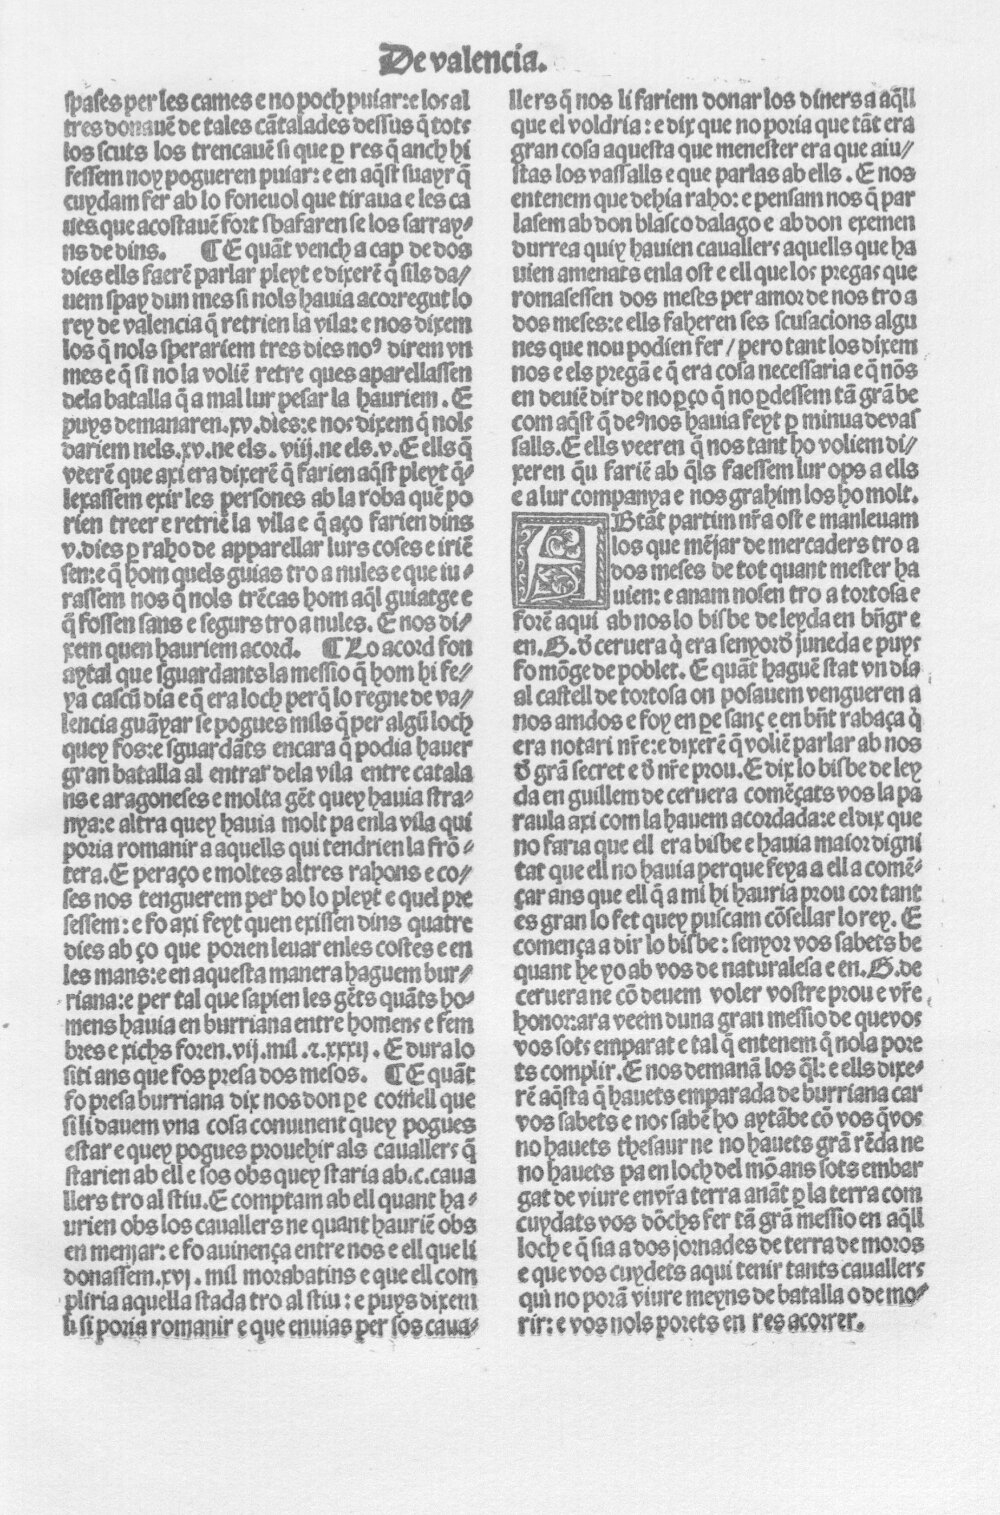 De valencia.
spases per les cames e no poch puiar: e los al
tres donauē de tales cātalades dessus q̄ tots
los scuts los trencauē si que ꝑ res q̄ anch hi
fessem noy pogueren puiar: e en aq̄st suayr q̄
cuydam fer ab lo foneuol que tiraua e les ca
ues que acostauē fort sbafaren se los sarray⸗
ns de dins. ¶ E quāt vench a cap de dos
dies ells faerē parlar pleyt e dixerē q̄ sils da⸗/
uem spay dun mes si nols hauia acorregut lo
rey de valencia q̄ retrien la vila: e nos dixem
los q̄ nols sperariem tres dies noꝰ direm vn
mes e q̄ si no la voliē retre ques aparellassen
dela batalla q̄ a mal lur pesar la hauriem. E
puys demanaren .xv. dies: e nos dixem q̄ nols
dariem nels .xv. ne els .viij. ne els .v. E ells q̄
veerē que axi era dixerē q̄ farien aq̄st pleyt q̄⸗
lexassem exir les persones ab la roba quē po
rien treer e retriē la vila e q̄ aço farien dins
v. dies ꝑ raho de apparellar lurs coses e iriē
sen: e q̄ hom quels guias tro a nules e que iu⸗
rassem nos q̄ nols trēcas hom aq̄l guiatge e
q̄ fossen sans e segurs tro a nules. E nos di/
xem quen hauriem acord. ¶ Lo acord fon
aytal que sguardants la messio q̄ hom hi fe⸗/
ya cascū dia e q̄ era loch perq̄ lo regne de va⸗
lencia guāyar se pogues mils q̄ per algū loch
quey fos: e sguardāts encara q̄ podia hauer
gran batalla al entrar dela vila entre catala
ns e aragoneses e molta gēt quey hauia stra⸗
nya: e altra quey hauia molt pa enla vila qui
poria romanir a aquells qui tendrien la frō⸗
tera. E peraço e moltes altres rahons e co/
ses nos tenguerem per bo lo pleyt e quel pre
sessem: e fo axi feyt quen exissen dins quatre
dies ab ço que porien leuar enles costes e en
les mans: e en aquesta manera haguem bur⸗/
riana: e per tal que sapien les gēts quāts ho⸗
mens hauia en burriana entre homens e fem
bres e xichs foren .vij. mil .⁊.xxxij. E dura lo
siti ans que fos presa dos mesos. ¶ E quāt
fo presa burriana dix nos don ꝑe cornell que
si li dauem vna cosa conuinent quey pogues
estar e quey pogues prouehir als cauallers q̄
starien ab ell e sos obs quey staria ab .c. caua
llers tro al stiu. E comptam ab ell quant ha⸗
urien obs los cauallers ne quant hauriē obs
en menjar: e fo auinença entre nos e ell que li
donassem .xvj. mil morabatins e que ell com
pliria aquella stada tro al stiu: e puys dixem
li si poria romanir e que enuias per sos caua⸗
llers q̄ nos li fariem donar los diners a aq̄ll
que el voldria: e dix que no poria que tāt era
gran cosa aquesta que menester era que aiu/
stas los vassalls e que parlas ab ells. E nos
entenem que dehia raho: e pensam nos q̄ par
lasem ab don blasco dalago e ab don exemen
durrea qui y hauien cauallers aquells que ha
uien amenats enla ost e ell que los pregas que
romasessen dos meses per amor de nos tro a
dos meses: e ells faheren ses scusacions algu
nes que nou podien fer / pero tant los dixem
nos e els pregā e q̄ era cosa necessaria e q̄ nōs
en deuiē dir de no ꝑço q̄ no ꝑdessem tā grā be
com aq̄st q̄ deꝰ nos hauia feyt ꝑ minua de vas
salls. E ells veeren q̄ nos tant ho voliem di/
xeren q̄u fariē ab q̄ls faessem lur ops a ells
e a lur companya e nos grahim los ho molt.
Abtāt partim nr̄a ost e manleuam
los que mējar de mercaders tro a
dos meses de tot quant mester ha
uien: e anam nosen tro a tortosa e
forē aqui ab nos lo bisbe de leyda en bn̄gr e
en. G. đ ceruera q̄ era senyor đ juneda e puys
fo mōge de poblet. E quāt haguē stat vn dia
al castell de tortosa on posauem vengueren a
nos amdos e foy en ꝑe sanç e en bn̄t rabaça q̄
era notari nr̄e: e dixerē q̄ voliē parlar ab nos
đ grā secret e đ nr̄e prou. E dix lo bisbe de ley
da en guillem de ceruera comēçats vos la pa
raula axi com la hauem acordada: e el dix que
no faria que ell era bisbe e hauia maior digni
tat que ell no hauia perque feya a ell a comē⸗
çar ans que ell q̄ a mi hi hauria prou cor tant
es gran lo fet quey puscam cōsellar lo rey. E
comença a dir lo bisbe: senyor vos sabets be
quant he yo ab vos de naturalesa e en. G. de
ceruera ne cō deuem voler vostre prou e vr̄e
honor: ara veem duna gran messio de que vos
vos sots emparat e tal q̄ entenem q̄ nola pore
ts complir. E nos demanā los q̄l: e ells dixe⸗
rē aq̄sta q̄ hauets emparada de burriana car
vos sabets e nos sabē ho aytābe cō vos q̄ vos
no hauets thesaur ne no hauets grā rēda ne
no hauets pa en loch del mō ans sots embar
gat de viure en vr̄a terra anāt ꝑ la terra com
cuydats vos dōchs fer tā grā messio en aq̄ll
loch e q̄ sia a dos jornades de terra de moros
e que vos cuydets aqui tenir tants cauallers
qui no porā viure meyns de batalla o de mo⸗/
rir: e vos nols porets en res acorrer.